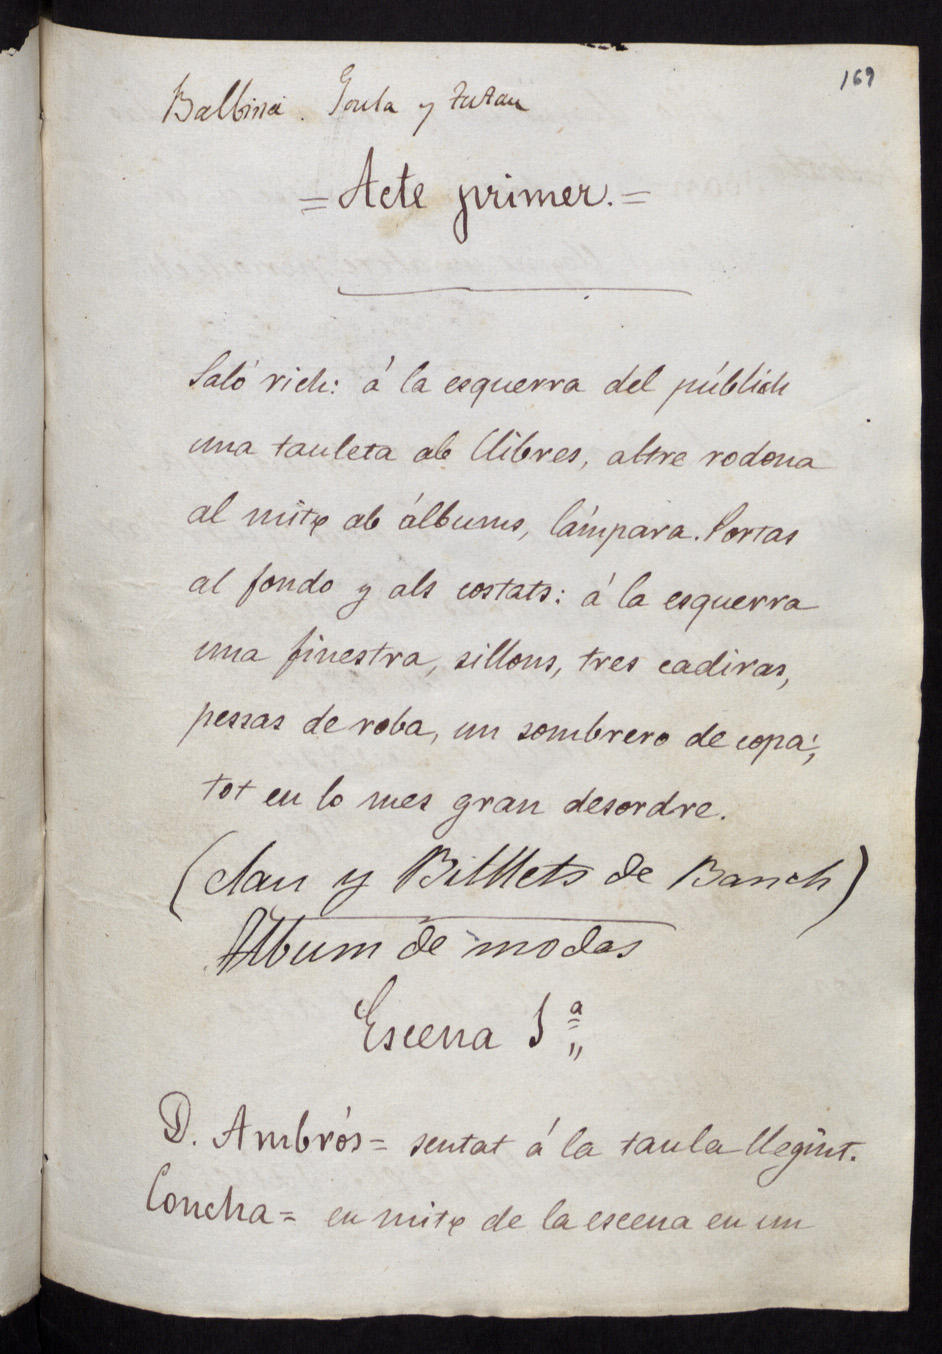 169
Balbina. Goula y Tutau
= Acte primer. =
Saló rich: á la esquerra del públich
una tauleta ab llibres, altre rodona
al mitx ab álbums, lámpara. Portas
al fondo y als costats: á la esquerra
una finestra, sillons, tres cadiras,
pessas de roba, un sombrero de copa;
tot en lo mes gran desordre.
(clau y Billlets de Banch)
Album de modas
Escena 1ª
D. Ambrós = sentat á la taula llegint.
Concha = en mitx de la escena en un